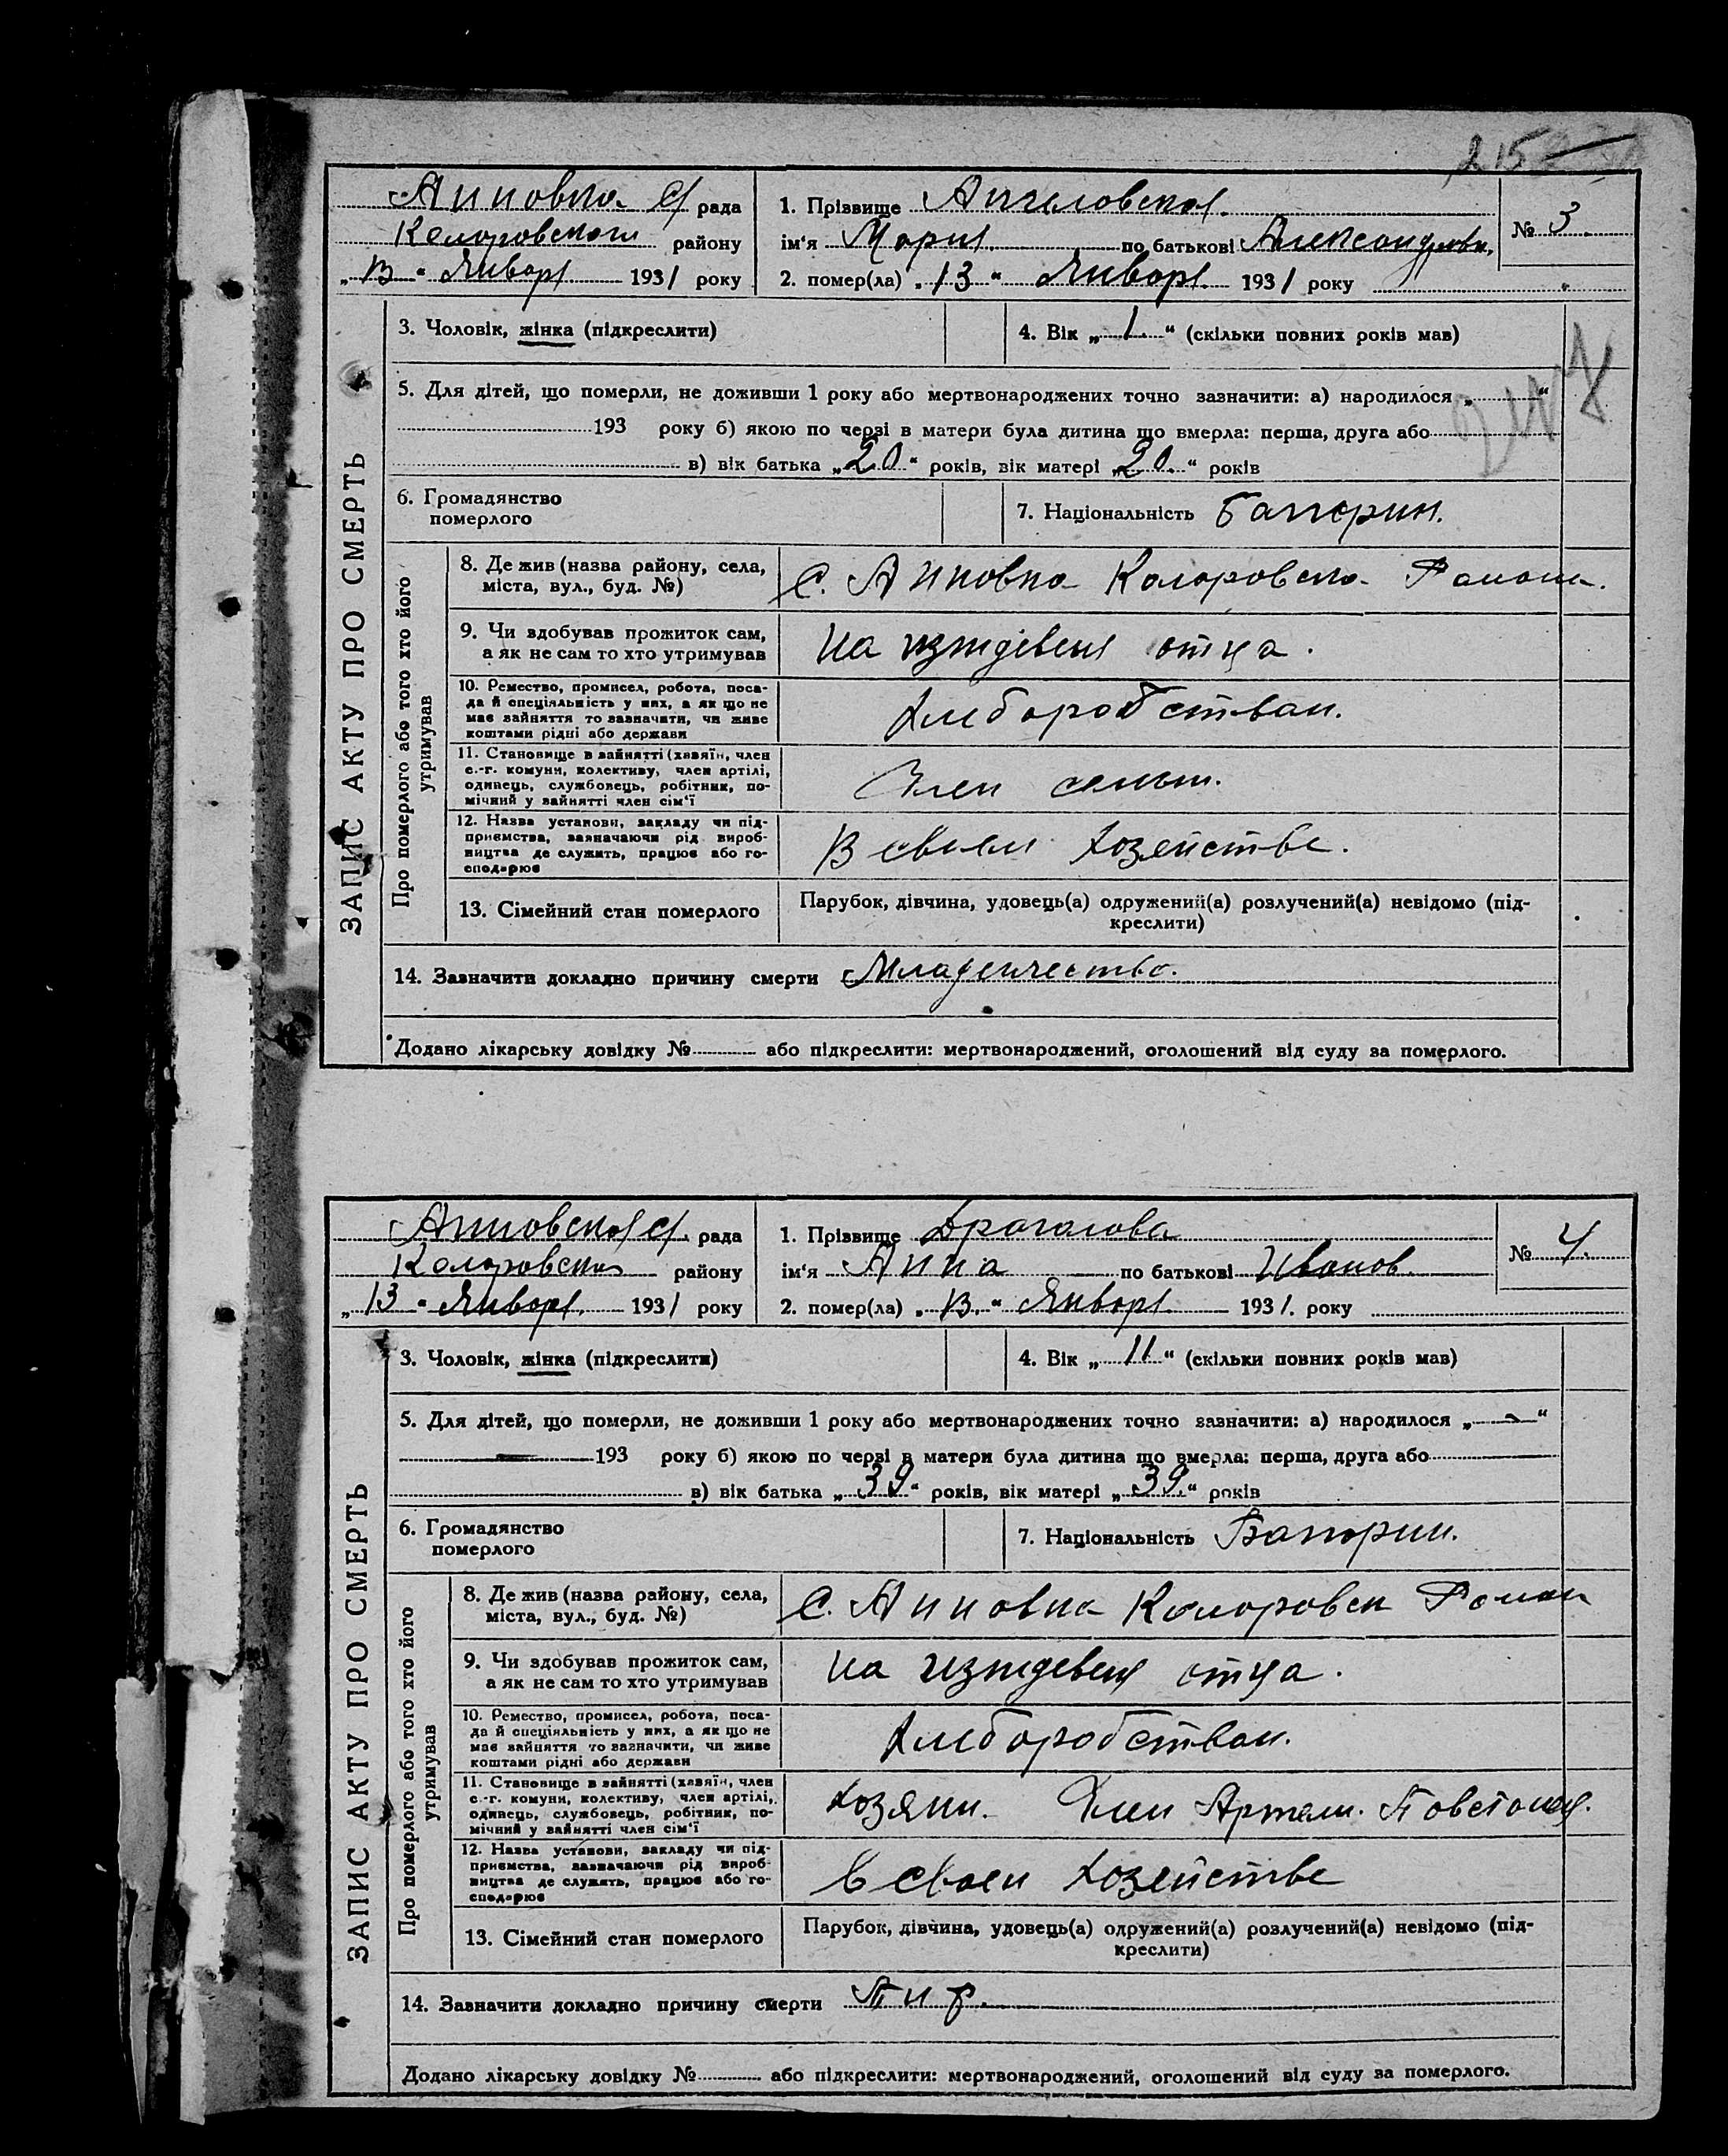 215
Анновка с/ рада
Коларовского району
„13“ Января 1931 року
1. Прізвище Ангеловская.
ім'я Мария. по батькові Александровн.
№ 3.
2. помер(ла) „13“ Января 1931 року
ЗАПИС АКТУ ПРО СМЕРТЬ
3. Чоловік, жінка (підкреслити)
4. Вік „1.“ (скільки повних років мав)
5. Для дітей, що померли, не доживши 1 року або мертвонароджених точно зазначити: а) народилося „ “
193 року б) якою по черзі в матери була дитина що вмерла: перша, друга або
в) вік батька „20“ років, вік матері „20.“ років
6. Громадянство
померлого
7. Національність Балгерин.
Про померлого або того хто його
утримував
8. Де жив (назва району, села,
міста, вул., буд. №)
С. Анновка Коларовско. Района.
9. Чи здобував прожиток сам,
а як не сам то хто утримував
на изждевеня отца.
10. Ремество, промисел, робота, поса-
да й спеціяльність у них, а як що не
має зайняття то зазначити, чи живе
коштами рідні або держави
Хлеборобством.
11. Становище в зайнятті (хазяїн, член
с.-г. комуни, колективу, член артілі,
одинець, службовець, робітник, по-
мічний у зайнятті член сім'ї
Член семьи.
12. Назва установи, закладу чи під-
приємства, зазначаючи рід вироб-
ництва де служить, працює або го-
сподарює
В своем хозяйстве.
13. Сімейний стан померлого
Парубок, дівчина, удовець(а) одружений(а) розлучений(а) невідомо (під-
креслити)
14. Зазначити докладно причину смерти Младенчество.
Додано лікарську довідку № або підкреслити: мертвонароджений, оголошений від суду за померлого.
Анновская с/ рада
Коларовского району
„13“ Января. 1931 року
1. Прізвище Драгалова
ім'я Анна по батькові Иванов.
№ 4.
2. помер(ла) „13.“ Января. 1931. року
ЗАПИС АКТУ ПРО СМЕРТЬ
3. Чоловік, жінка (підкреслити)
4. Вік „11“ (скільки повних років мав)
5. Для дітей, що померли, не доживши 1 року або мертвонароджених точно зазначити: а) народилося „—“
— 193 року б) якою по черзі в матери була дитина що вмерла: перша, друга або
в) вік батька „39“ років, вік матері „39.“ років
6. Громадянство
померлого
7. Національність Балгерин.
Про померлого або того хто його
утримував
8. Де жив (назва району, села,
міста, вул., буд. №)
С. Анновка Коларовск Район
9. Чи здобував прожиток сам,
а як не сам то хто утримував
на изждевеня отца.
10. Ремество, промисел, робота, поса-
да й спеціяльність у них, а як що не
має зайняття то зазначити, чи живе
коштами рідні або держави
Хлеборобством.
11. Становище в зайнятті (хазяїн, член
с.-г. комуни, колективу, член артілі,
одинець, службовець, робітник, по-
мічний у зайнятті член сім'ї
Хозяин. Член Артели.
12. Назва установи, закладу чи під-
приємства, зазначаючи рід вироб-
ництва де служить, працює або го-
сподарює
в своем хозяйстве
13. Сімейний стан померлого
Парубок, дівчина, удовець(а) одружений(а) розлучений(а) невідомо (під-
креслити)
14. Зазначити докладно причину смерти Тиф.
Додано лікарську довідку № або підкреслити: мертвонароджений, оголошений від суду за померлого.